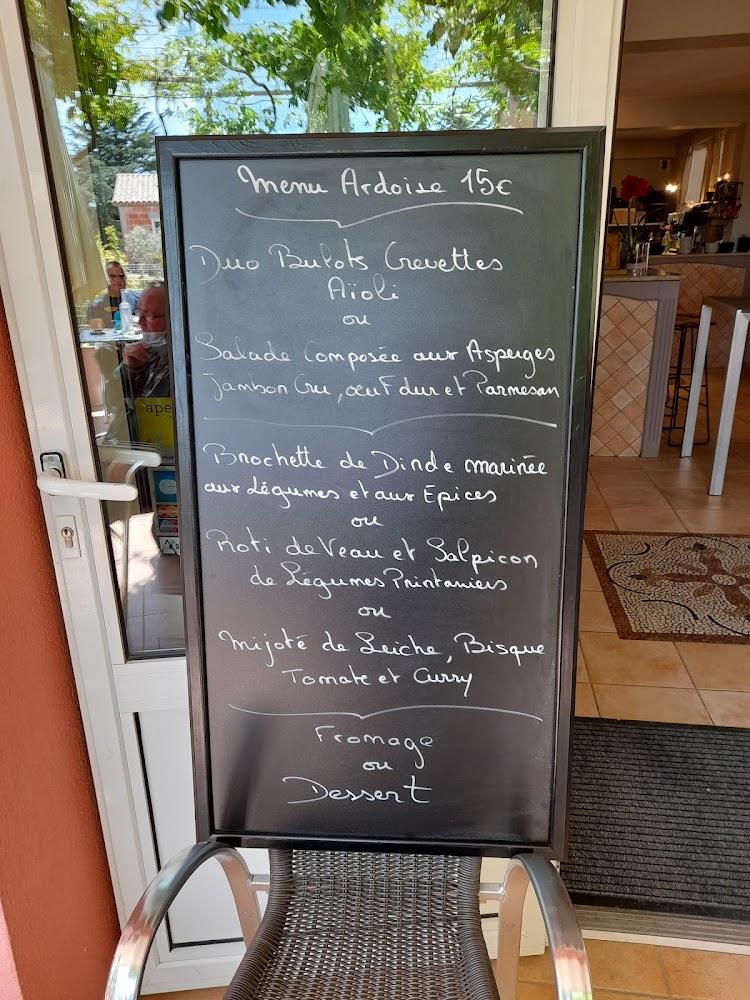 Menu Ardoise 15€
Duo Bulots Crevettes
Aïoli
ou
Salade Composée aux Asperges
Jambon Cru, œuf dur et Parmesan
Brochette de Dinde marinée
aux Légumes et aux Epices
ou
Roti de Veau et Salpicon
de Légumes Printaniers
ou
Mijoté de Seiche, Bisque
Tomate et Curry
Fromage
ou
Dessert
ape